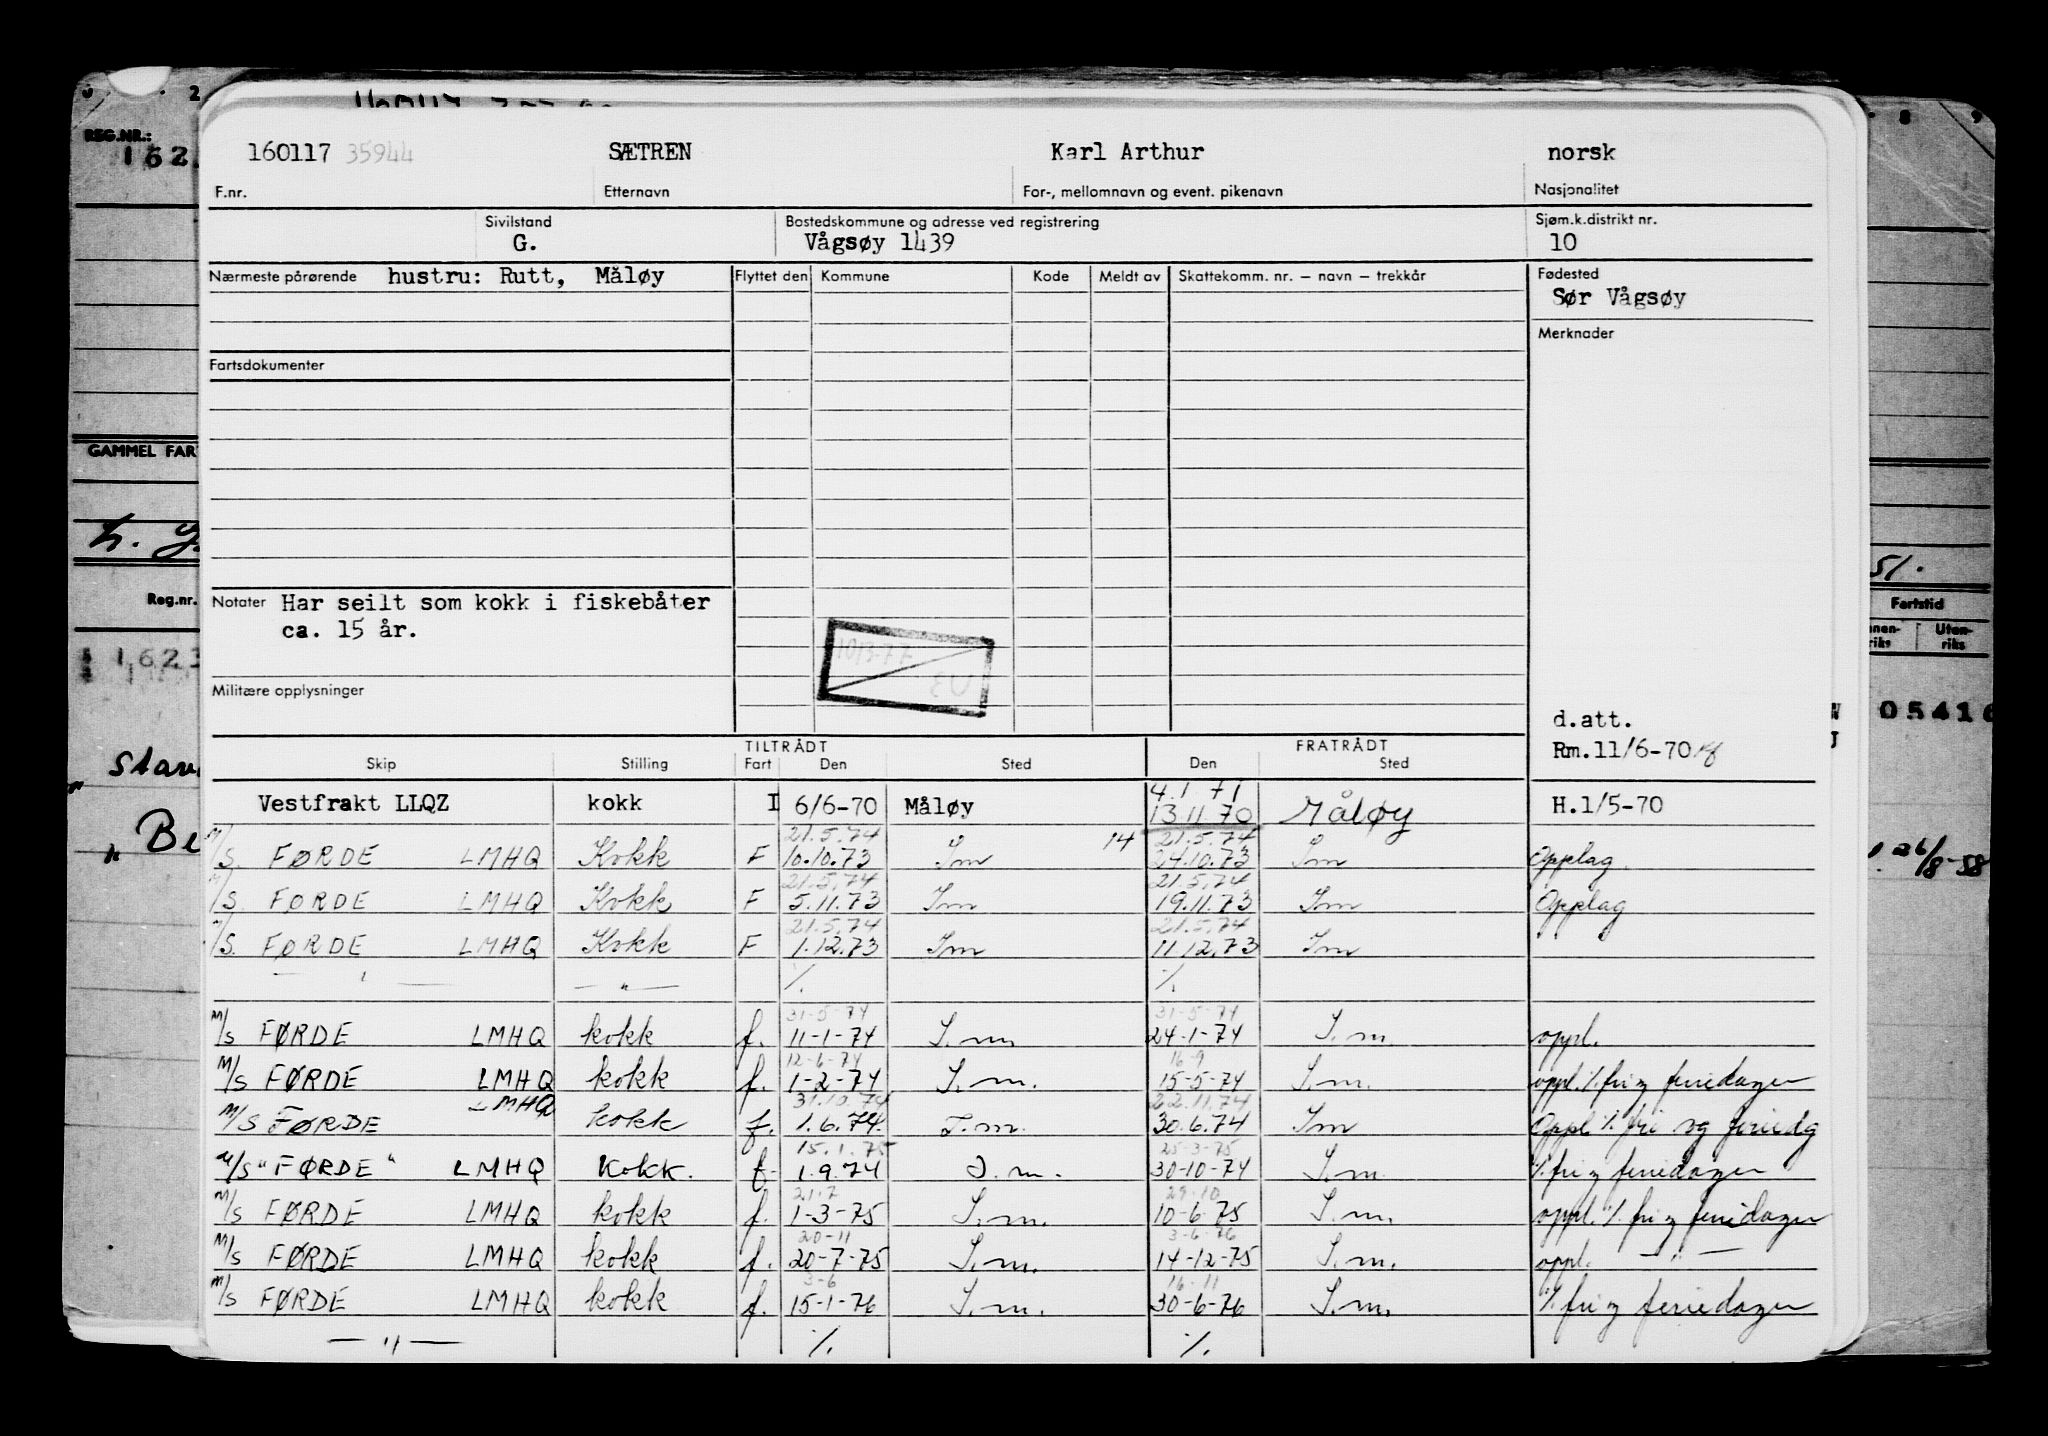 REG.NR.:
160117 35944 SÆTREN Karl Arthur norsk
F.nr. Etternavn For-, mellomnavn og event. pikenavn Nasjonalitet
Sivilstand Bostedskommune og adresse ved registrering Sjøm.k.distrikt nr.
G. Vågsøy 1439 10
Nærmeste pårørende hustru: Rutt, Måløy Flyttet den Kommune Kode Meldt av Skattekomm. nr. – navn – trekkår Fødested
Sør Vågsøy
Merknader
Fartsdokumenter
GAMMEL FAR
51.
Reg.nr. Notater Har seilt som kokk i fiskebåter Fartstid
ca. 15 år.
10/3-77
Militære opplysninger
05416
d.att.
Rm.11/6-70
TILTRÅDT FRATRÅDT
Skip Stilling Fart Den Sted Den Sted
4.1 71
Vestfrakt LLQZ kokk I 6/6-70 Måløy 13.11.70 Måløy H.1/5-70
21.5.74 21.5.74
M/S. FØRDE LMHQ Kokk F 10.10.73 Im 14 24.10.73 Im Opplag
21.5.74 21.5.74
M/S. FØRDE LMHQ Kokk F 5.11.73 Im 19.11.73 Im Opplag
21.5.74 21.5.74
M/S. FØRDE LMHQ Kokk F 1.12.73 Im 11.12.73 Im
— " — — " — ./. ./.
31-5-74 31-5-74
M/S FØRDE LMHQ kokk f. 11-1-74 I.m. 24-1-74 I.m. oppl.
12-6-74 16-9
M/S FØRDE LMHQ kokk f. 1-2-74 I.m. 15-5-74 I.m. oppl. ./. fri og feriedager
31.10.74 22.11.74
M/S FØRDE LMHQ kokk f. 1.6.74. I.m. 30.6.74 Im Oppl ./. fri og feriedg
15.1.75 25-3-75
M/S "FØRDE" LMHQ Kokk. f. 1.9.74 I.m. 30-10-74 I.m. ./. fri og feriedager
21-7 29-10
M/S FØRDE LMHQ kokk f. 1-3-75 I.m. 10-6-75 I.m. oppl. ./. fri og feriedager
20-11 3-6-76
M/S FØRDE LMHQ kokk f. 20-7-75 I.m. 14-12-75 I.m. oppl. — " —
3-6 16-11
M/S FØRDE LMHQ kokk f. 15-1-76 I.m. 30-6-76 I.m. ./. fri og feriedager
— " — ./. ./.